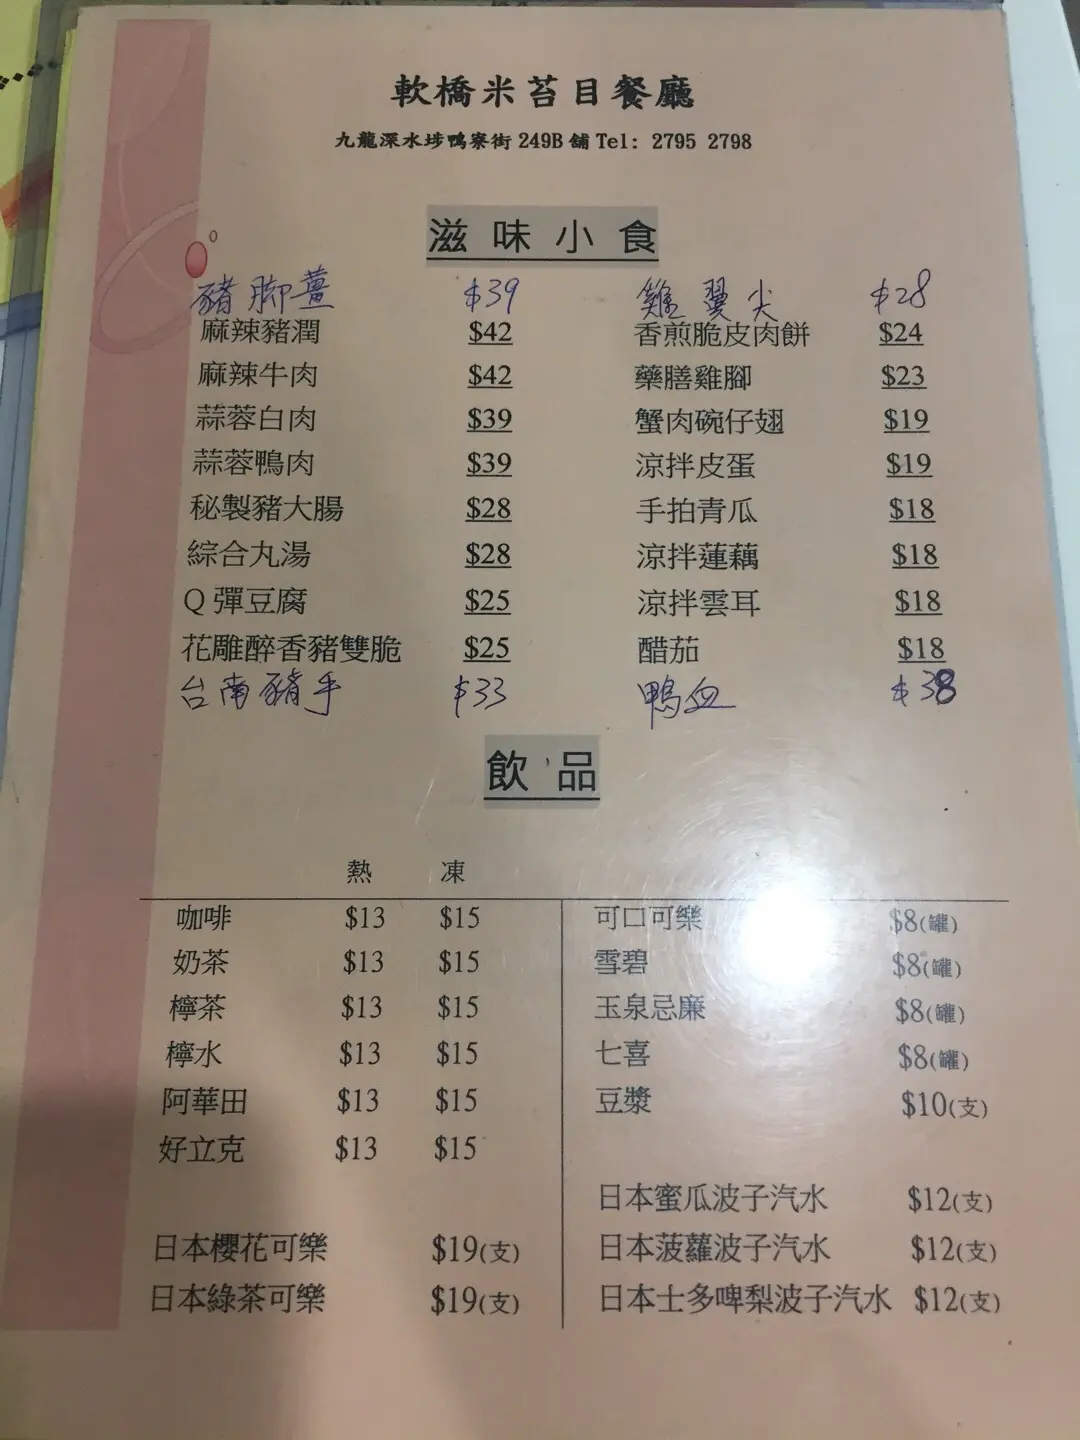 軟橋米苔目餐廳
九龍深水埗鴨寮街 249B 舖 Tel: 2795 2798
滋味小食
豬脚薑 $39 雞翼尖 $28
麻辣豬潤 $42 香煎脆皮肉餅 $24
麻辣牛肉 $42 藥膳雞腳 $23
蒜蓉白肉 $39 蟹肉碗仔翅 $19
蒜蓉鴨肉 $39 涼拌皮蛋 $19
秘製豬大腸 $28 手拍青瓜 $18
綜合丸湯 $28 涼拌蓮藕 $18
Q 彈豆腐 $25 涼拌雲耳 $18
花雕醉香豬雙脆 $25 醋茄 $18
台南豬手 $33 鴨血 $38
飲品
熱 凍
咖啡 $13 $15 可口可樂 $8(罐)
奶茶 $13 $15 雪碧 $8(罐)
檸茶 $13 $15 玉泉忌廉 $8(罐)
檸水 $13 $15 七喜 $8(罐)
阿華田 $13 $15 豆漿 $10(支)
好立克 $13 $15
日本蜜瓜波子汽水 $12(支)
日本櫻花可樂 $19(支) 日本菠蘿波子汽水 $12(支)
日本綠茶可樂 $19(支) 日本士多啤梨波子汽水 $12(支)